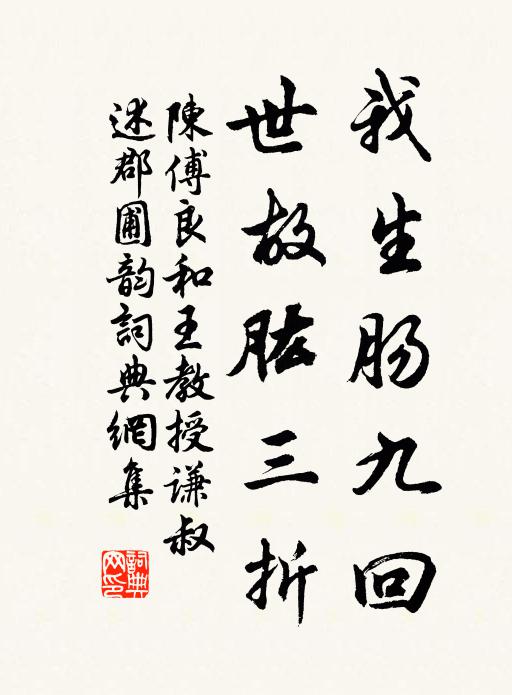 我生肠九回
世故肱三折
陳傅良和王教授谦叔
述郡圃韵詞典網集
詞典网印